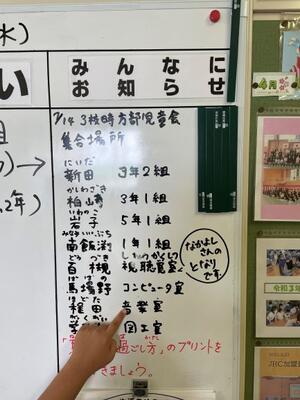 水)
い
みんなに
お知らせ
7/14 3校時方部児童会
集合場所
にいだ
新田 3年2組
かしわざき
柏崎 3年1組
石子 5年1組
みなみいいぶち
南飯渕 1年1組
しちょうかくしつ
百槻 視聴覚室
なかよし
さんの
となり
です。
ばばの
馬場野 コンピュータ室
程田 音楽室
図工室
過ごし方」のプリントを
きましょう。
2年)
4月
令和3年
JRC加盟